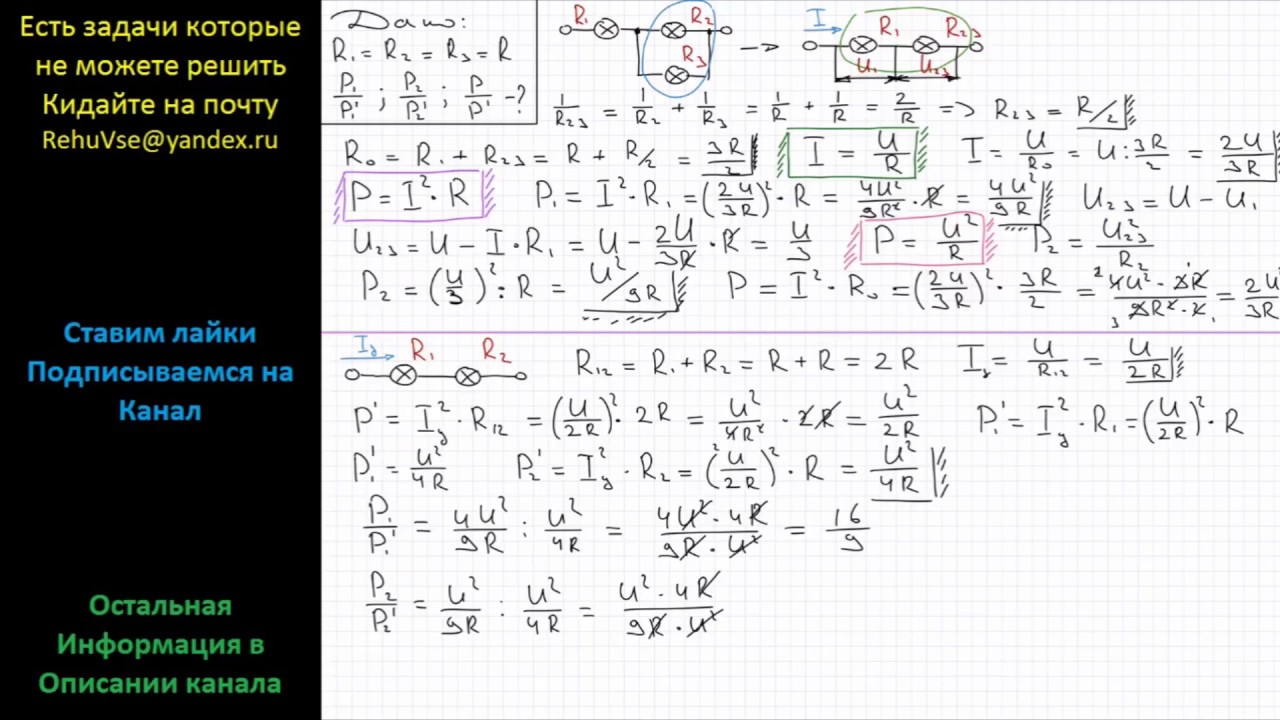 Есть задачи которые
не можете решить
Кидайте на почту
RehuVse@yandex.ru
Ставим лайки
Подписываемся на
Канал
Остальная
Информация в
Описании канала
Дано:
R₁ = R₂ = R₃ = R
P₁/P₁' ; P₂/P₂' ; P/P' - ?
R₁ R₂ R₃ → I R₁ R₂₃ U₁ U₂₃
1/R₂₃ = 1/R₂ + 1/R₃ = 1/R + 1/R = 2/R => R₂₃ = R/2
R₀ = R₁ + R₂₃ = R + R/2 = 3R/2 I = U/R I = U/R₀ = U : 3R/2 = 2U/3R
P = I² · R P₁ = I² · R₁ = (2U/3R)² · R = 4U²/9R² · R = 4U²/9R U₂₃ = U - U₁
U₂₃ = U - I · R₁ = U - 2U/3R · R = U/3 P = U²/R P₂ = U₂₃²/R₂
P₂ = (U/3)² : R = U²/9R P = I² · R₀ = (2U/3R)² · 3R/2 = 4U² · 3R/9R² · 2 = 2U/3R
I_y R₁ R₂ R₁₂ = R₁ + R₂ = R + R = 2R I_y = U/R₁₂ = U/2R
P' = I_y² · R₁₂ = (U/2R)² · 2R = U²/4R² · 2R = U²/2R P₁' = I_y² · R₁ = (U/2R)² · R
P₁' = U²/4R P₂' = I_y² · R₂ = (U/2R)² · R = U²/4R
P₁/P₁' = 4U²/9R : U²/4R = 4U² · 4R/9R · U² = 16/9
P₂/P₂' = U²/9R : U²/4R = U² · 4R/9R · U²